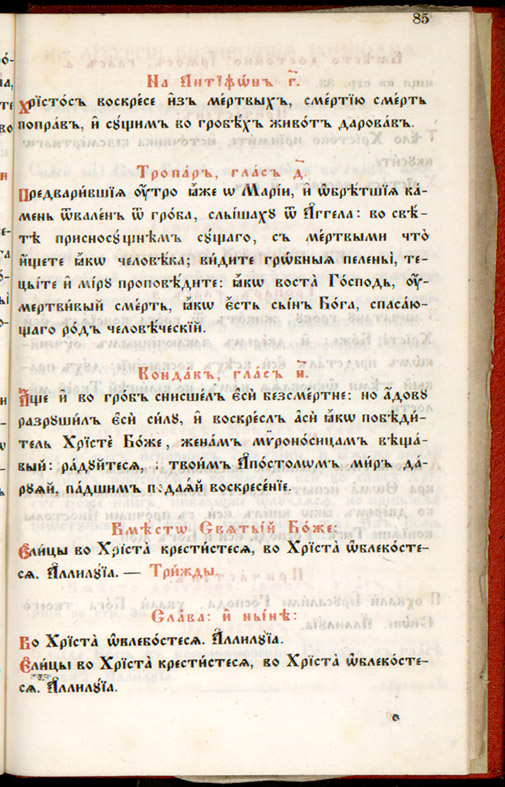 85
На Антїфѡ́нъ г҃.
Хрїсто́съ воскре́се и҆зъ ме́ртвыхъ, сме́ртїю сме́рть
попра́въ, и҆ су́щимъ во гробѣ́хъ живо́тъ дарова́въ.
Тропа́рь, гла́съ д҃.
Предвари́вшїѧ оу҆́тро ꙗ҆́же ѡ Марі́и, и҆ ѡ҆брѣ́тшїѧ ка́-
мень ѿвале́нъ ѿ гро́ба, слы́шаху ѿ А҆́ггела: во свѣ́-
тѣ присносу́щнѣмъ су́щаго, съ ме́ртвыми что̀
и҆́щете ꙗ҆́кѡ человѣ́ка; ви́дите грѡ́бныѧ пелены̀, те-
цы́те и҆ мі́ру проповѣ́дите: ꙗ҆́кѡ воста̀ Го́сподь, оу҆-
мертви́вый сме́рть, ꙗ҆́кѡ є҆́сть сы́нъ Бо́га, спаса́ю-
щаго ро́дъ человѣ́ческїй.
Конда́къ, гла́съ и҃.
А҆́ще и҆ во гро́бъ снизше́лъ є҆сѝ безсме́ртне: но а҆́дову
разруши́лъ є҆сѝ си́лу, и҆ воскре́слъ а҆сѝ ꙗ҆́кѡ побѣди́-
тель Хрїстѐ Бо́же, жена́мъ мѷроно́сицамъ вѣща́-
вый: ра́дуйтесѧ, и҆ твои̑мъ А҆по́столѡмъ ми́ръ да́-
руѧй, па́дшимъ пода́ѧй воскресе́нїе.
Вмѣ́стѡ Свѧты́й Бо́же:
Е҆ли́цы во Хрїста̀ крести́стесѧ, во Хрїста̀ ѡ҆блеко́сте-
сѧ. А҆ллилу́їа. — Три́жды.
Сла́ва: и҆ ны́нѣ:
Во Хрїста̀ ѡ҆блеко́стесѧ. А҆ллилу́їа.
Е҆ли́цы во Хрїста̀ крести́стесѧ, во Хрїста̀ ѡ҆блеко́сте-
сѧ. А҆ллилу́їа.